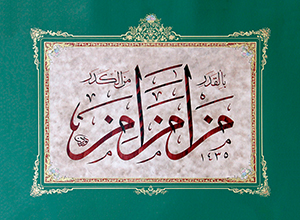 بالقدر من الكدر
من امن امن
١٤٣٥